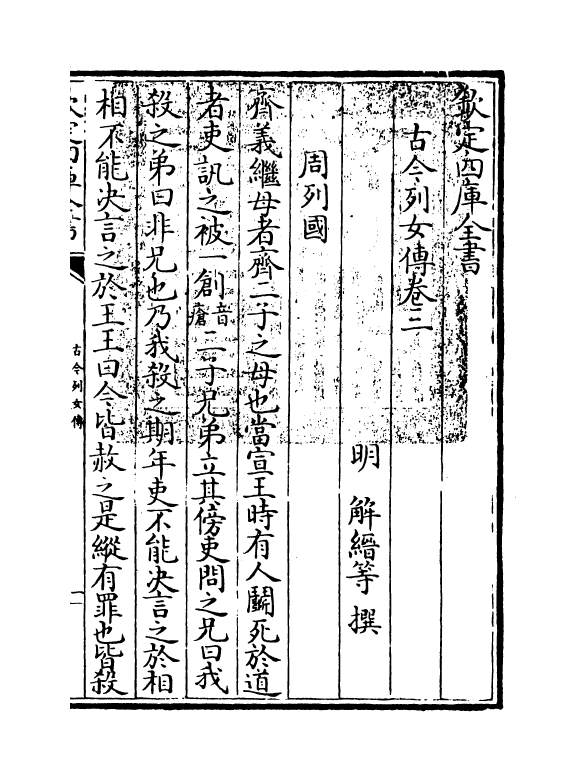 欽定四庫全書
古今列女傳卷三
明　解縉等　撰
周列國
齊義繼母者齊二子之母也當宣王時有人鬬死於道
者吏訊之被一創音瘡二子兄弟立其傍吏問之兄曰我
殺之弟曰非兄也乃我殺之期年吏不能决言之於相
相不能决言之於王王曰今皆赦之是縱有罪也皆殺
古今列女傳